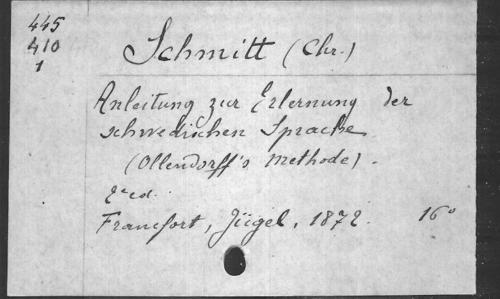 445
410
1
Schmitt (Chr.)
Anleitung zur Erlernung der
schwedischen Sprache
(Ollendorff's Methode).
2e ed.
Francfort, Jügel, 1872. 16°